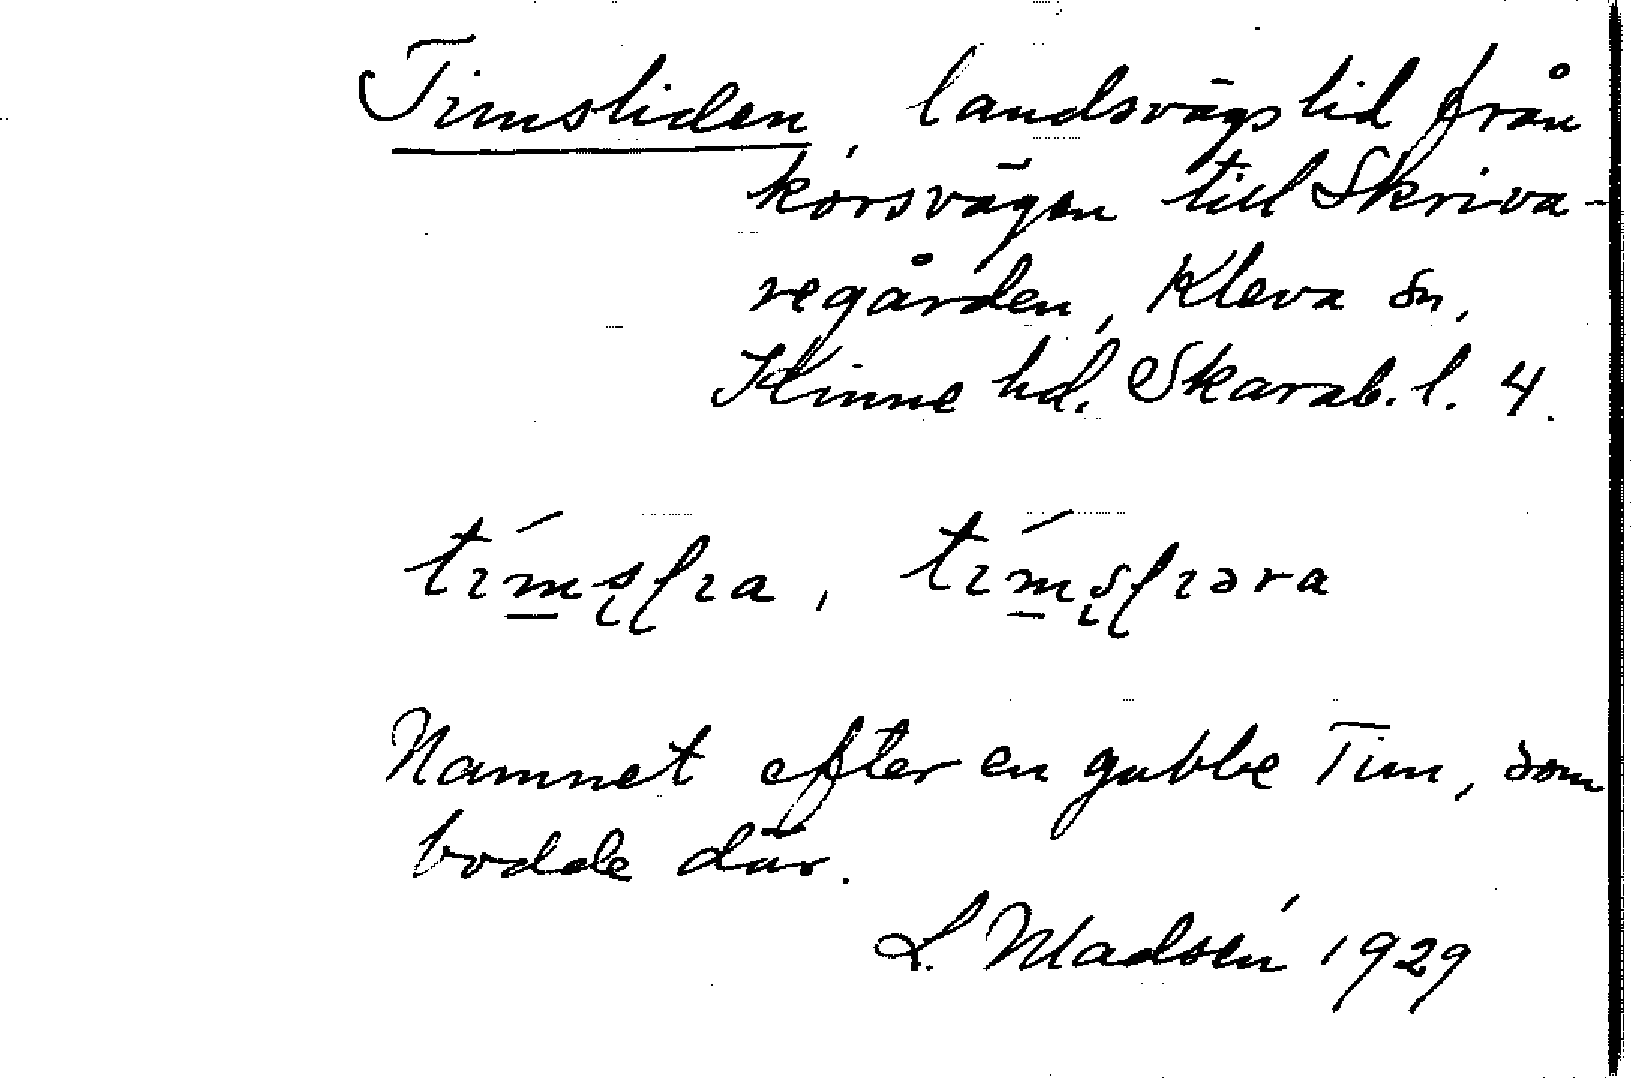 Timsliden, landsvägslid från
korsvägen till Skriva-
regården, Kleva sn,
Kinne hd. Skarab. l. 4.
Namnet efter en gubbe Tim, som
bodde där.
L. Madsén 1929